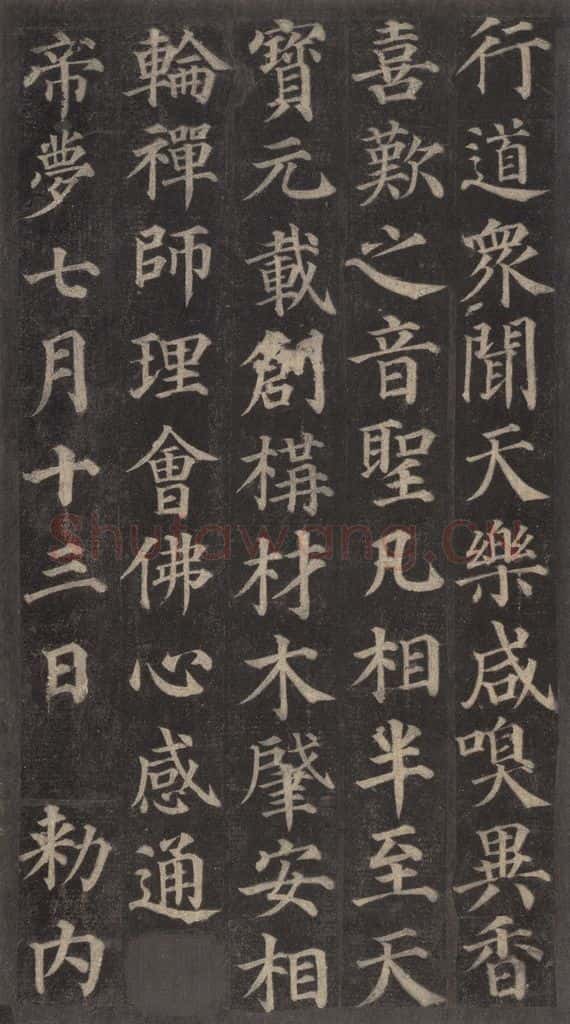 行道衆聞天樂咸嗅異香
喜歎之音聖凡相半至天
寶元載創構材木肇安相
輪禪師理會佛心感通
帝夢七月十三日 勑内
Shufawang.cn